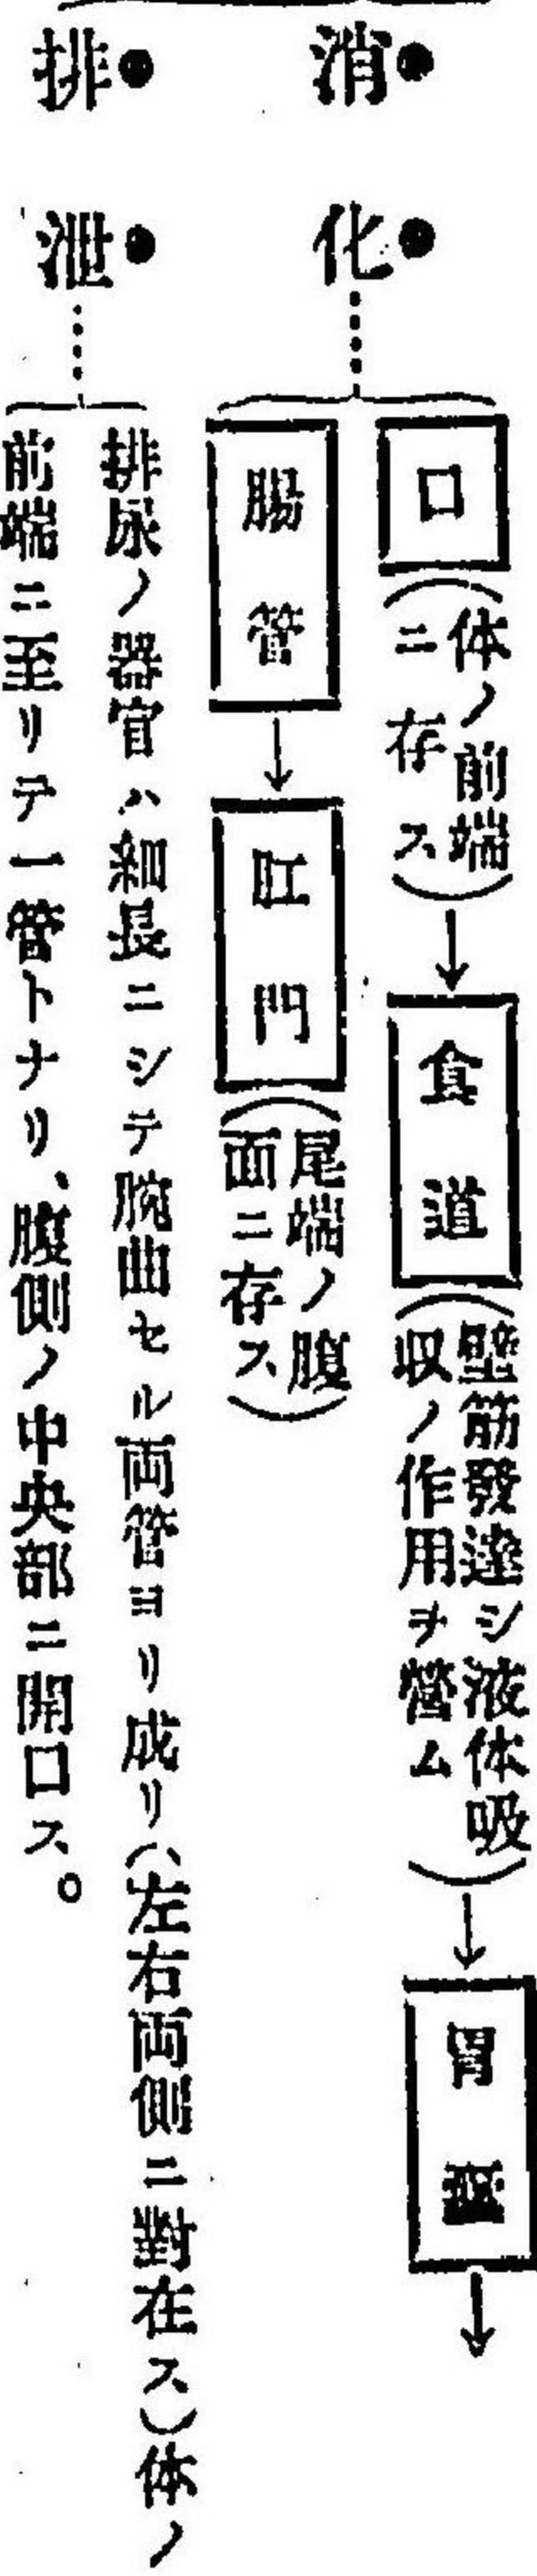 消化
口(体ノ前端ニ存ス)→食道(壁筋發達シ液体吸収ノ作用ヲ營ム)→胃→
腸管→肛門(尾端ノ腹面ニ存ス)
排泄
排尿ノ器官ハ細長ニシテ腕曲セル両管ヨリ成リ(左右両側ニ對在ス)体ノ
前端ニ至リテ一管トナリ、腹側ノ中央部ニ開口ス。